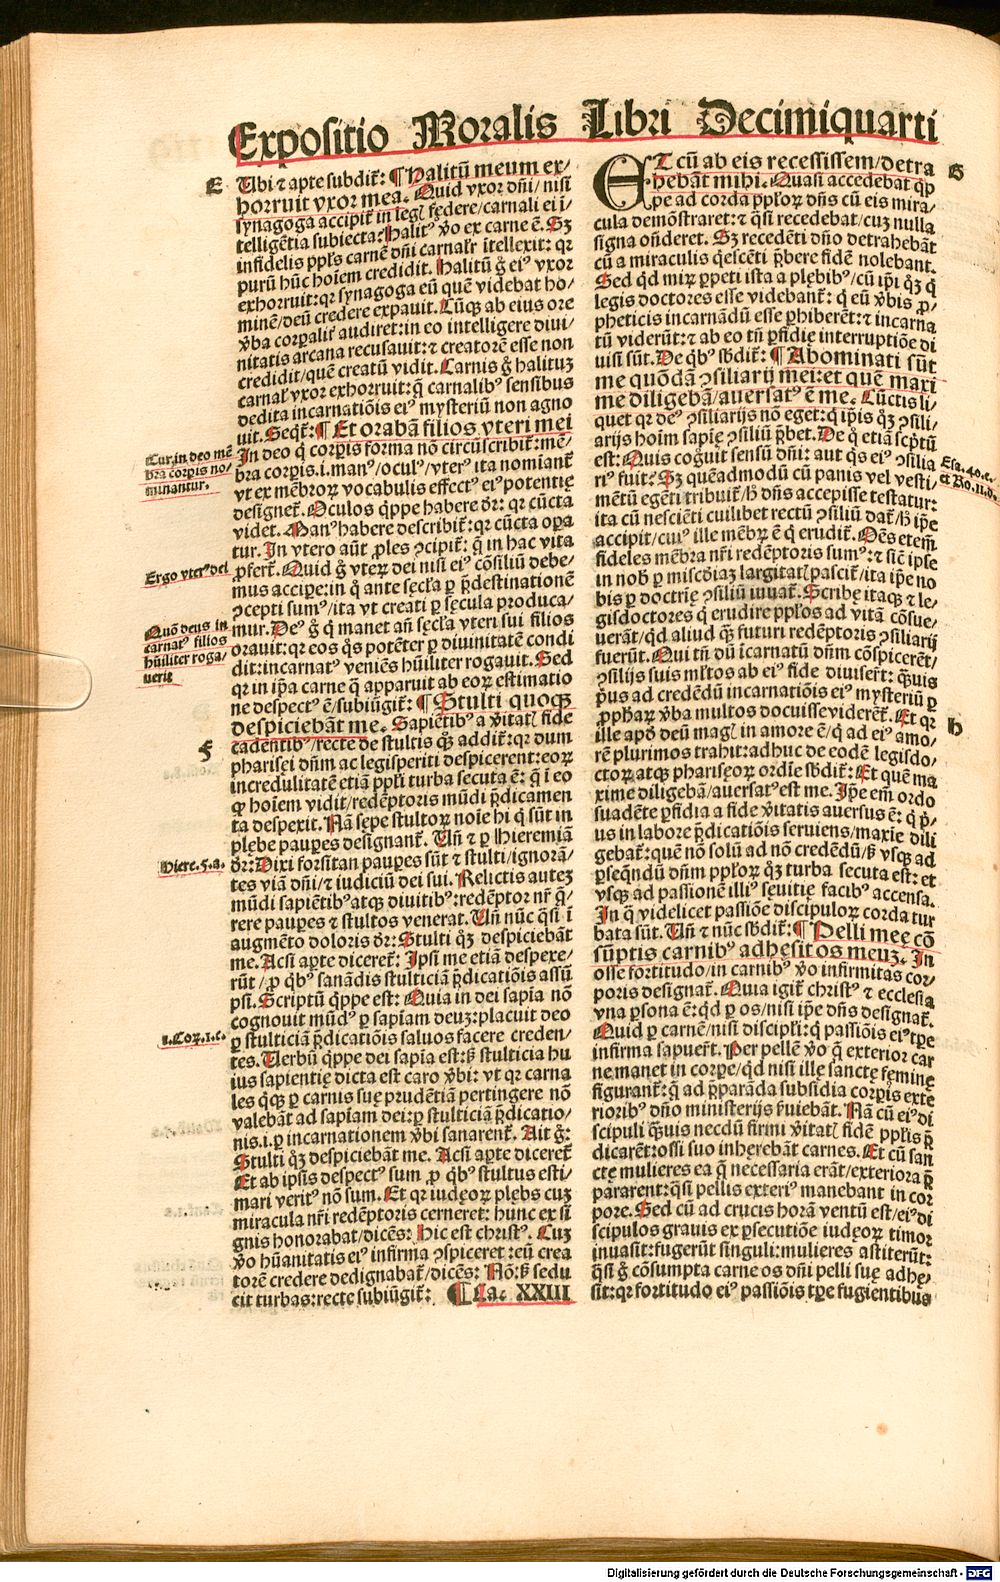 Expositio Moralis Libri Decimiquarti
E
Ubi ⁊ apte subdit̃: ¶ Halitũ meum ex/
horruit vxor mea. Quid vxor dñi/ nisi
synagoga accipit̃ in legl̃ fędere/carnali ei i/
telligẽtia subiecta: Halitꝰ v̑o ex carne ẽ. Sꝫ
infidelis pp̃ls carnẽ dñi carnalr̃ ĩtellexit: qꝛ
purũ hũc hoĩem credidit. Halitũ g̊ eiꝰ vxor
exhorruit: qꝛ synagoga eũ quẽ videbat ho/
minẽ/deũ credere expauit. Cũqꝫ ab eius ore
v̑ba corp̱alit̃ audiret: in eo intelligere diui/
nitatis arcana recusauit: ⁊ creatorẽ esse non
credidit/quẽ creatũ vidit. Carnis g̊ halitum
carnal̃ vxor exhorruit: q̃ carnalibꝰ sensibus
dedita incarnatiõis eiꝰ mysteriũ non agno
uit. Seqt̃: ¶ Et orabã filios vteri mei
In deo q̊ corp̱is forma nõ circũscribit̃: mẽ/
bra corp̱is .i. manꝰ/oculꝰ/vterꝰ ita nomiant̃
vt ex mẽbroꝝ vocabulis effectꝰ eiꝰ potentię
designet̃. Oculos q̃ppe habere dr̃: qꝛ cũcta
videt. Manꝰ habere describit̃: qꝛ cũcta opa̱
tur. In vtero aũt ꝓles ↄcipit̃: q̃ in hac vita
ꝓfert̃. Quid g̊ vterꝝ dei nisi eiꝰ cõsiliũ debe/
mus accipe̱: in q̊ ante sęcl̃a ꝑ p̃destinationẽ
ↄcepti sumꝰ/ita vt creati ꝑ sęcula produca/
mur. Deꝰ g̊ q̊ manet añ sęcl̃a vteri sui filios
orauit: qꝛ eos q̊s potẽter ꝑ diuinitatẽ condi
dit: incarnatꝰ veniẽs hũiliter rogauit. Sed
qꝛ in ip̃a carne q̃ apparuit ab eoꝝ estimatio
ne despectꝰ ẽ/subiũgit̃: ¶ Stulti quoqꝫ
despiciebãt me. Sapiẽtibꝰ a v̑itatl̃ fide
F
cadentibꝰ/recte de stultis qꝫ addit̃: qꝛ dum
pharisei dñm ac legisperiti despicerent: eoꝝ
incredulitatẽ etiã pp̃li turba secuta ẽ: q̃ ĩ eo
qꝫ hoĩem vidit/redẽptoris mũdi p̃dicamen
ta despexit. Nã sępe stultoꝝ noĩe hi q̊ sũt in
plebe paupe̱s designant̃. Uñ ⁊ ꝑ Hieremiã
dr̃: Dixi forsitan paupe̱s sũt ⁊ stulti/ignorã/
tes viã dñi/⁊ iudiciũ dei sui. Relictis autẽ
mũdi sapiẽtibꝰ atqꝫ diuitibꝰ: redẽptor nr̃ q̃/
rere paupe̱s ⁊ stultos venerat. Uñ nũc q̃si ĩ
augmẽto doloris dr̃: Stulti q̊ꝫ despiciebãt
me. Acsi ap̱te diceret̃: Ipsi me etiã despexe/
rũt/ꝓ q̊bꝰ sanãdis stulticiã p̃dicatiõis assũ
psi. Scriptũ q̃ppe est: Quia in dei sapĩa nõ
cognouit mũdꝰ ꝑ sapĩam deuꝫ: placuit deo
ꝑ stulticiã p̃dicatiõis saluos facere creden/
tes. Uerbũ q̃ppe dei sapĩa est: ß stulticia hu
ius sapientię dicta est caro v̑bi: vt qꝛ carna
les q̊qꝫ ꝑ carnis suę prudẽtiã pertingere nõ
valebãt ad sapĩam dei: ꝑ stulticiã p̃dicatio/
nis .i. ꝑ incarnationem v̑bi sanarent̃. Ait g̊:
Stulti q̊ꝫ despiciebãt me. Acsi ap̱te diceret̃
Et ab ipsis despectꝰ sum ꝓ q̊bꝰ stultus esti/
mari veritꝰ nõ sum. Et qꝛ iudęoꝝ plębs cuꝫ
miracula nr̃i redẽptoris cerneret: hũnc ex si
gnis honorabat/dicẽs: Hic est christꝰ. Cuꝫ
v̑o hũanitatis eiꝰ infirma ↄspiceret: eũ crea
torẽ credere dedignabat̃/dicẽs: Nõ: ß sedu
cit turbas: recte subiũgit̃: ¶ Ca. XXIII
Cur in deo mẽ
bra corpis no/
minantur.
Ergo vterꝰ dei
Quõ deus in
carnatꝰ filios
hũiliter roga/
uerit
Hiere. 5. a.
1. Coꝝ. 1. c.
ET cũ ab eis recessissem/detra
hebãt mihi. Quasi accedebat q̃p
pe ad corda pp̃loꝝ dñs cũ eis mira/
cula demõstraret: ⁊ q̃si recedebat/cuꝫ nulla
signa oñderet. Sꝫ recedẽti dño detrahebãt
cũ a miraculis q̃escẽti p̃bere fidẽ nolebant.
Sed q̊d mirꝝ ꝑpeti ista a plębibꝰ/cũ ip̃i q̊ꝫ q̊
legis doctores esse videbant̃: q̊ eũ v̑bis ꝓ/
pheticis incarnãdũ esse ꝑhiberẽt: ⁊ incarna
tũ viderũt: ⁊ ab eo tñ ꝑfidię interruptiõe di
uisi sũt. De q̊bꝰ sb̃dit̃: ¶ Abominati sũt
me quõdã ↄsiliarij mei: et quẽ maxi
me diligebã/auersatꝰ ẽ me. Cũctis li/
quet qꝛ deꝰ ↄsiliarijs nõ eget: q̊ ip̃is q̊ꝫ ↄsili/
arijs hoĩm sapię ↄsiliũ p̃bet. De q̊ etiã sc̃ptũ
est: Quis cog̃uit sensũ dñi: aut q̊s eiꝰ ↄsilia
riꝰ fuit. Sꝫ quẽadmodũ cũ panis vel vesti/
mẽtũ egẽti tribuit̃/h̃ dñs accepisse testatur:
ita cũ nesciẽti cuilibet rectũ ↄsiliũ dat̃/h̃ ip̃e
accipit/cuiꝰ ille mẽbꝝ ẽ q̊ erudit̃. Oẽs etem̃
fideles mẽbra nr̃i redẽptoris sumꝰ: ⁊ sic̃ ipse
in nob̃ ꝑ mĩscdiaꝫ largitatl̃ pascit̃/ita ip̃e no
bis ꝑ doctrię ↄsiliũ iuuat̃. Scribę itaqꝫ ⁊ le/
gisdoctores q̊ erudire pp̃los ad vitã cõsue/
uerãt/q̊d aliud qꝫ futuri redẽptoris ↄsiliarij
fuerũt. Qui tñ dũ ĩcarnatũ dñm cõspicerẽt/
ↄsilijs suis ml̃tos ab eiꝰ fide diuisert̃: q̃uis
p̃us ad credẽdũ incarnatiõis eiꝰ mysteriũ ꝑ
ꝓphaꝝ v̑ba multos docuisse viderẽt̃. Et qꝛ
ille apđ deũ magl̃ in amore ẽ/q̊ ad eiꝰ amo/
rẽ plurimos trahit: adhuc de eodẽ legisdo/
ctoꝝ atqꝫ phariseoꝝ ordĩe sb̃dit̃: Et quẽ ma
xime diligebã/auersatꝰ est me. Ip̃e em̃ ordo
suadẽte ꝑfidia a fide v̑itatis auersus ẽ: q̊ p̃/
us in labore p̃dicatiõis seruiens/maxie dili
gebat̃: quẽ nõ solũ ad nõ credẽdũ/ß vsqꝫ ad
ꝑseq̃ndũ dñm pp̃loꝝ q̊ꝫ turba secuta est: et
vsqꝫ ad passionẽ illiꝰ seuitię facibꝰ accensa.
In q̃ videlicet passiõe discipuloꝝ corda tur
bata sũt. Uñ ⁊ nũc sb̃dit̃: ¶ Pelli meę cõ
sũptis carnibꝰ adhesit os meuꝫ. In
osse fortitudo/in carnibꝰ v̑o infirmitas cor/
poris designat̃. Quia igit̃ christꝰ ⁊ ecclesia
vna ꝑsona ẽ: q̊d ꝑ os/nisi ip̃e dñs designat̃.
Quid ꝑ carnẽ/nisi discipl̃i: q̊ passiõis eiꝰ tp̃e
infirma sapuert̃. Per pellẽ v̑o q̃ exterior car
ne manet in corpe̱/q̊d nisi illę sanctę femine
figurant̃: q̃ ad p̃parãda subsidia corp̱is exte
rioribꝰ dño ministerijs f̃uiebãt. Nã cũ eiꝰ di
scipuli q̃uis necdũ firmi v̑itatl̃ fidẽ pp̃lis p̃
dicarẽt: ossi suo inherebãt carnes. Et cũ san
ctę mulieres ea q̃ necessaria erãt/exteriora p̃
pararent: q̃si pellis exteriꝰ manebant in cor
pore. Sed cũ ad crucis horã ventũ est/eiꝰ di
scipulos grauis ex ꝑsecutiõe iudęoꝝ timor
inuasit: fugerũt singuli: mulieres astiterũt:
q̃si g̊ cõsumpta carne os dñi pelli suę adhę/
sit: qꝛ fortitudo eiꝰ passiõis tp̃e fugientibus
G
Esa. 40. c.
et Ro. 11. d.
h
Digitalisierung gefördert durch die Deutsche Forschungsgemeinschaft - DFG